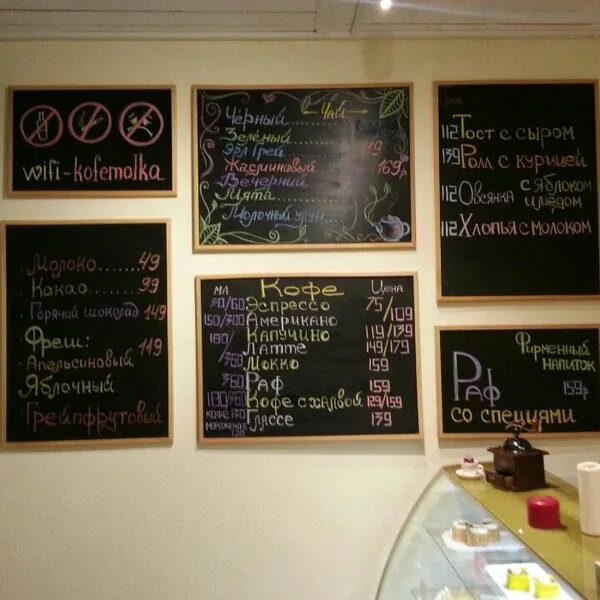 wifi-kofemolka
Молоко......49
Какао......99
Горячий шоколад 149
Фреш: 119
Апельсиновый
Яблочный
Грейпфрутовый
Чай
Чёрный
Зелёный
Эрл Грей 119
Жасминовый 169р
Вечерний
Мята
Молочный улун
мл Кофе Цена
30/60 Эспрессо 75/109
150/300 Американо
180/360 Капучино 119/139
Латте 149/179
Мокко 159
360 Раф 159
180/360 Кофе с халвой 129/159
Кофе 130 Глассе 139
мороженое 120
112 Тост с сыром
139 Ролл с курицей
112 Овсянка с яблоком и мёдом
112 Хлопья с молоком
Фирменный
напиток
Раф 159р
со специями